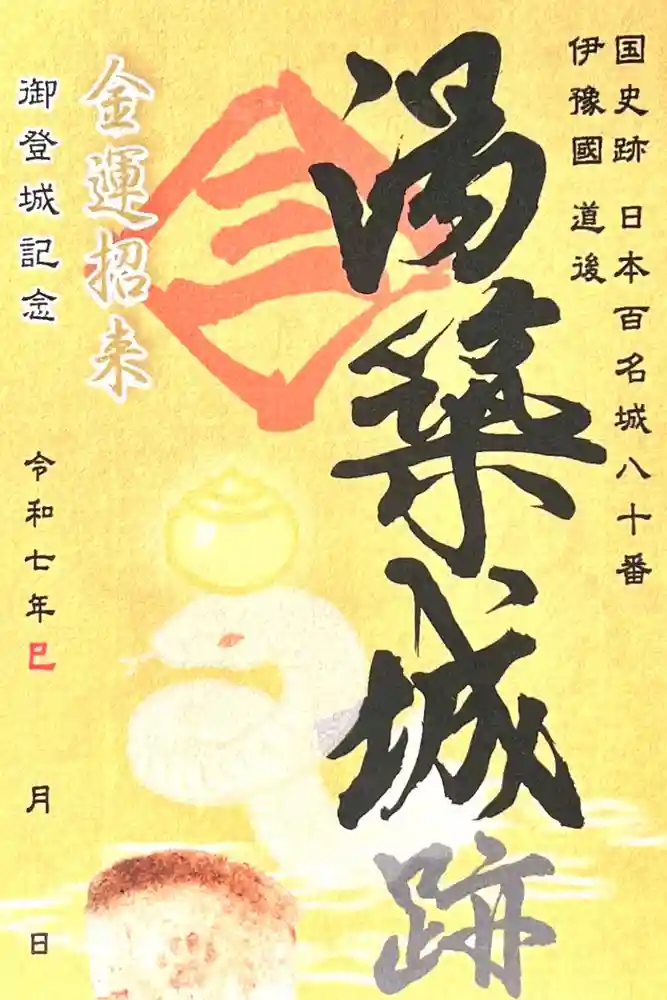 国史跡 日本百名城八十番
伊豫國 道後
湯築城跡
金運招来
御登城記念
令和七年巳 月 日